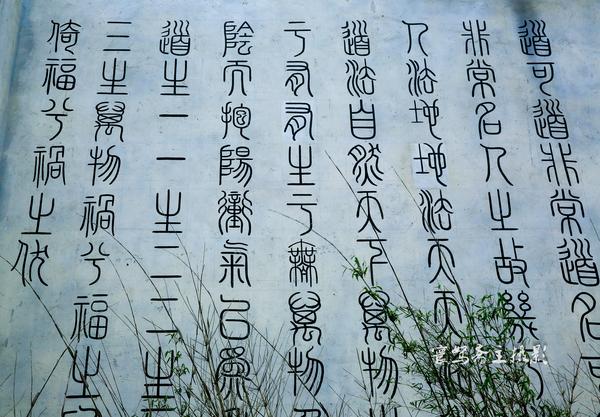 道可道非常道名可
非常名人之故幾
人法地地法天天
道法自然天下萬物
于有有生于無萬物
陰而抱陽衝氣以為
道生一一生二二生
三生萬物禍兮福之
倚福兮禍之伏